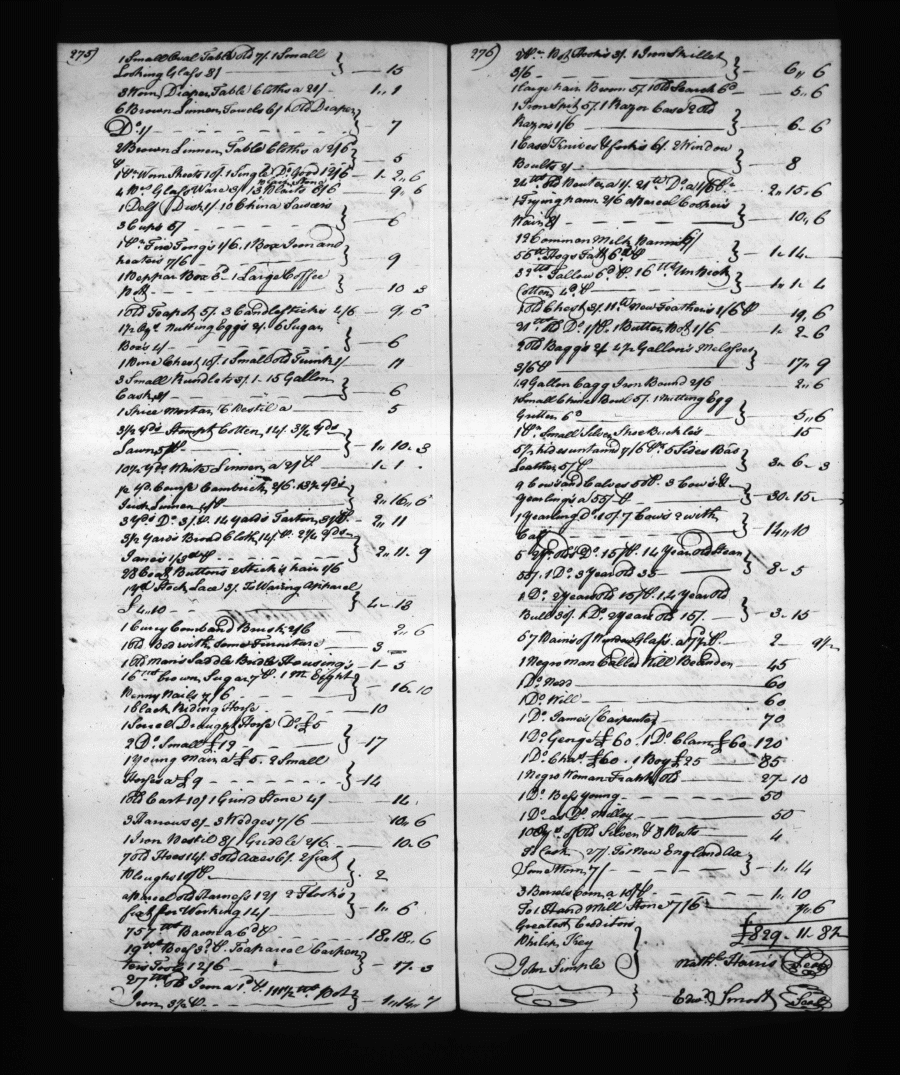 275)
1 Small Oval Table Old 7/. 1 Small
Looking Glass 8/ } 15
3 Worn Diaper Table Cloths a 21/ 1,, 1
6 Brown Linnen Towels 6/ 1 old Diaper
Do 1/ } 7
2 Brown Linnen Table Cloths a 2/6
} 5
1 Pr Worn Sheets 10/. 1 Single Do Good 12/6 1. 2,, 6
4 Glass Ware 3/ 13 Plates 6/6 9,, 6
1 Delf Dish 1/ 10 China Sawcers
3 Cups 5/ } 6
1 Pr Fire Tongs 1/6. 1 Box Iron and
heaters 7/6 } 9
1 Peppar Box 6d 1 Large Coffee
Pott } 10 3
1 old Teapot 5/. 3 Candlesticks 4/6 9,, 6
Nutting Eggs 2/. 6 Sugar
Boxes 4/ } 6
1 Pine Chest 10/. 1 Small old Trunk 1/ 11
3 Small Rundlets 3/. 1 15 Gallon
Cask 3/ } 6
1 Spice Mortar & Pestil a 5
3 1/2 yds Stampt Cotten 14/. 3 1/2 yds
Lawn } 1,, 10. 3
10 1/2 yds White Linnen a 2/ 1. 1 .
1/2 yd. Course Cambrick 2/6. 13 1/2 yds
Irish Linnen } 2,, 16,, 6
3 yds Do. 3/. 14 yards Tartin 2,, 11
3 1/2 yards Broad Cloth 14/. 2 3/4 yds
Janes } 2. 11. 9
28 Coat Buttons 2 Sticks hair 1/6
1 yd Stock Lace 3/. To Waring Apparel
£4,,10 } 4. 18
1 Curry Comb and Brush 2/6 2,, 6
1 Old Bed with Some Furniture 3
1 Old Man's Saddle Bridle & Housing's 1. 5
16 lb Brown Sugar 7d. 1 M. Eight
Penny Nails 7/6 } 16. 10
1 Black Riding Horse 10
1 Sorrel Draught Horse Do. £5
2 Do Small £12 } 17
1 Young Mare a £5. 2 Small
Horses a £9 } 14
1 Old Cart 10/ 1 Grind Stone 4/ 14.
3 Harrows 3/. 3 Wedges 7/6 10,, 6
1 Iron Pestil 8/ 1 Griddle 2/6 10. 6
7 old Hoes 14/. 3 old Axes 6/. 2 Seat
Ploughs 10/ } 2
a parcel old Harness 12/ 2 Flock's
fit for Working 14/ } 1,, 6
757 lb Bacon a 6d 18. 18,, 6
19 lb Beef 3d. To a parcel Carpen
ters Tools 12/6 } 17. 3
27 lb Old Iron a 1d 111 1/2 lb Pot
Iron 3 1/2 } 1,, 14,, 7
276)
2 Pr Pot Hooks 3/. 1 Iron Skillet
3/6 } 6,, 6
1 large hair Broom 5/. 1 old Search 6d 5,, 6
1 Iron Spit 5/. 1 Razor Case 2 old
Razors 1/6 } 6. 6
1 Case Knives & forks 6/. 2 Window
Boults 2/ } 8
24 lb Old Pewter a 1/. 21 lb Do. a 1/6 2,, 15,, 6
1 Frying pann 2/6 a parcel Coopers
Ware 8/ } 10,, 6
12 Common Milk Panns 6/
56 lb Hogs Fatt 6d } 1. 14
32 lb Tallow 6d. 16 lb Un Pick
Cotten 4d } 1. 1. 4
1 old Chest 3/. 11 lb New Feathers 1/6 19,, 6
21 lb Old Do. 1/. 1 Butter Pot 1/6 1. 2. 6
2 old Baggs 2/. 4 1/2 Gallons Melasses
3/6 } 17,, 9
1 9 Gallon Cagg Iron Bound 2/6 2,, 6
1 Small Chine Bowl 5/. 1 Nutting Egg
Gritter 6d } 5,, 6
1 Pr Small Silver Shoe Buckles 15
5 1/2 hides untand 7/6 5 Sides Bas
Leather 5/ } 3. 6. 3
9 Cows and Calves 55/. 3 Cows &
Yearlings a 55/ } 30. 15
1 Yearling do. 10/ 7 Cows 2 with
Calf } 14,, 10
5 2 Yr old Do. 15/ 1 4 Year old Stear
55/. 1 Do. 3 Year old 35 } 8. 5
1 Do. 2 Year old 15/. 1 4 Year old
Bull 35/. 1 Do. 2 Year old 15/. } 3. 15
57 Pains of Window Glass a 2 9 1/2
1 Negro Man Called Will Bearden 45
1 Do Nedd 60
1 Do. Will 60
1 Do James (Carpenter) 70
1 Do. George £60. 1 Do. Clam £60 120
1 Do. Chas £60. 1 Boy £25 85
1 Negro Woman Frank Old 27. 10
1 Do. Bess young 50
1 Do. Do. Molley 50
of Old Silver 4
Cash 27/. To 1 New England Ax
Some Horn 7/ } 1,, 14
3 Barrels Corn a 10/ 1,, 10
To 1 Hand Mill Stone 7/6 7,, 6
Greatest Creditors £829. 11. 8 1/2
Philip Key
John Simple
Nathl. Harris (Seal)
Edwd. Smoot (Seal)